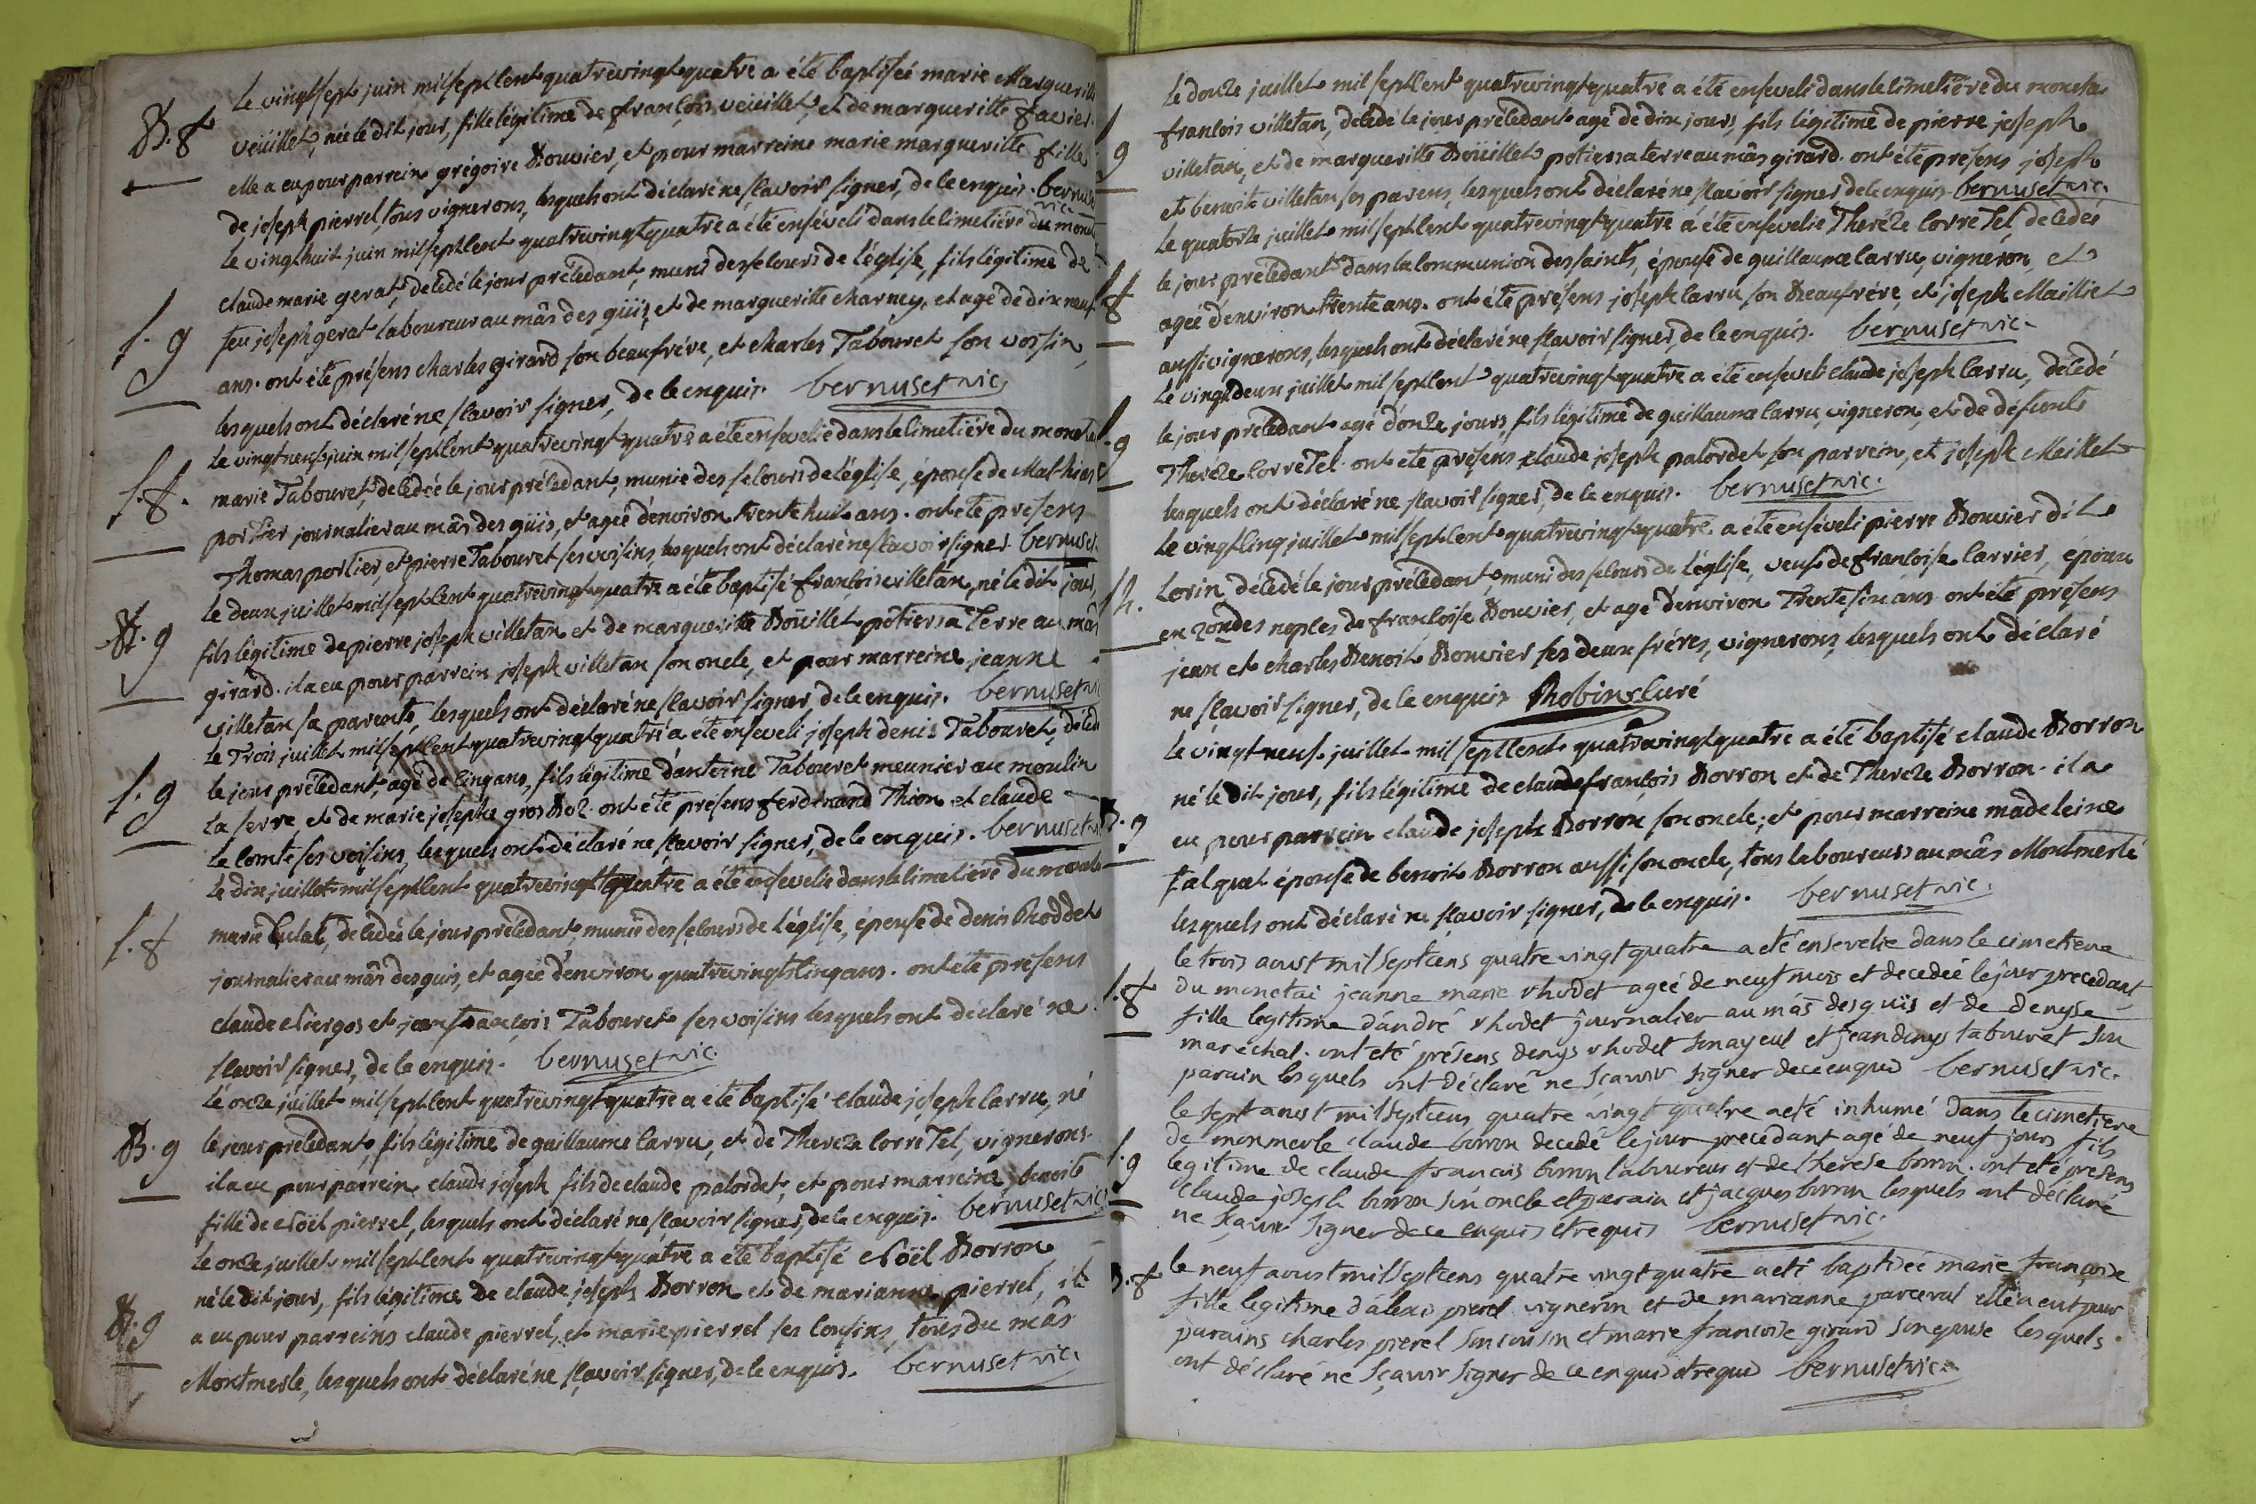 Le vingt sept juin mil sept cent quatre vingt quatre a été baptiseé marie Marguerite
B. f veüillet, née le dit jour, fille légitime de françois veüillet, et de margueritte favier.
elle a eu pour parrein grégoire Bouvier, et pour marreine marie marguerite fille
de joseph pierrel, tous vignerons, lesquels ont déclaré ne sçavoir signer, de ce enquis. bernuset
vic.
Le vingt huit juin mil sept cent quatre vingt quatre a été enséveli dans le cimetiére du monetai
claude marie gerat, decedé le jour précédant, muni des secours de l'église, fils légitime de
S. g feu joseph gerat laboureur au mâs des güis, et de marguerite charney, et agé de dix neuf
ans. ont été présens charles girard son beaufrére, et charles Tabouret son voisin,
lesquels ont déclaré ne sçavoir signer, de ce enquis. bernuset vic.
Le vingt neuf juin mil sept cent quatre vingt quatre a été ensevelie dans le cimetiére du monetai
S. f. marie Tabouret, decedeé le jour précédant, munie des secours de l'église, épouse de Mathieu
portier journalier au mâs des güis, et ageé d'environ trente huit ans. ont été présens
Thomas portier, et pierre Tabouret ses voisins, lesquels ont déclaré ne sçavoir signer. bernuset
Le deux juillet mil sept cent quatre vingt quatre a été baptisé françois villetan, né le dit jour,
B. g fils légitime de pierre joseph villetan et de marguerite Boüillet potiers a Terre au mâs
girard. il a eu pour parrein joseph villetan son oncle, et pour marreine jeanne
villetan sa parente, lesquels ont déclaré ne sçavoir signer, de ce enquis. bernuset vic
Le Trois juillet mil sept cent quatre vingt quatre a été enseveli joseph denis Tabouret, decedé
S. g le jour précédant, agé de cinq ans, fils légitime d'antoine Tabouret meunier au moulin
La serve, et de marie josephe gros Boz. ont été présens ferdinand Thion et claude
Le comte ses voisins, lesquels ont déclaré ne sçavoir signer, de ce enquis. bernuset vic
Le dix juillet mil sept cent quatre vingt quatre a été ensevelie dans le cimetiére du monetai
S. f marie Culat, decedeé le jour précédant, munie des secours de l'église, épouse de denis Rhoddet
journalier au mâs des guis, et ageé d'environ quatre vingts cinq ans. ont été présens
claude et jean françois Tabouret ses voisins lesquels ont déclaré ne
sçavoir signer, de ce enquis. bernuset vic.
Le onze juillet mil sept cent quatre vingt quatre a été baptisé claude joseph Carru, né
B. g le jour précédant, fils légitime de guillaume Carru, et de Thereze CorreTel, vignerons.
il a eu pour parrein claude joseph fils de claude palordet, et pour marreine benoite
fille de Noël pierrel, lesquels ont déclaré ne sçavoir signer, de ce enquis. bernuset vic
Le onze juillet mil sept cent quatre vingt quatre a été baptisé Noël Borron,
né le dit jour, fils légitime de claude joseph Borron et de marianne pierrel, il
B. g a eu pour parreins claude pierrel, et marie pierrel ses cousins, tous du mâs
Montmerle, lesquels ont déclaré ne sçavoir signer, de ce enquis. bernuset vic.
Le douze juillet mil sept cent quatre vingt quatre a été enseveli dans le cimetiére du monetai
françois villetan, decedé le jour précédant agé de dix jours, fils légitime de pierre joseph
S. g villetan, et de marguerite Boüillet potiers a terre au mâs girard. ont été présens joseph
et benoit villetan ses parens, lesquels ont déclaré ne sçavoir signer, de ce enquis. bernuset vic.
Le quatorze juillet mil sept cent quatre vingt quatre a été ensevelie Theréze CorreTel, decedeé
S. f le jour précédant dans la communion des saints, épouse de guillaume Carru, vigneron, et
ageé d'environ trente ans. ont été présens joseph Carru son Beaufrére, et joseph Maillet
aussi vignerons, lesquels ont déclaré ne sçavoir signer, de ce enquis. bernuset vic.
Le vingt deux juillet mil sept cent quatre vingt quatre a été enseveli claude joseph Carru, décédé
S. g le jour précédant agé d'onze jours, fils légitime de guillaume Carru, vigneron, et de défuncte
Theréze CorreTel. ont été présens claude joseph palordet son parrein, et joseph Maillet
lesquels ont déclaré ne sçavoir signer, de ce enquis. bernuset vic.
Le vingt cinq juillet mil sept cent quatre vingt quatre a été enséveli pierre Bouvier dit
S. h. Lorin, décedé le jour précédant, muni des secours de l'église, veuf de françoise Carrier, époux
en 2ondes nopces de françoise Bouvier, et agé d'environ Trente six ans ont été présens
jean et charles Benoit Bouvier ses deux fréres, vignerons, lesquels ont déclaré
ne sçavoir signer, de ce enquis Robin curé
Le vingt neuf juillet mil sept cent quatre vingt quatre a été baptisé claude Borron
né le dit jour, fils légitime de claude françois Borron et de Thereze Borron. il a
B. g eu pour parrein claude joseph Borron son oncle, et pour marreine madeleine
falquet épouse de benoit Borron aussi son oncle, tous laboureurs au mâs Montmerle
lesquels ont déclaré ne sçavoir signer, de ce enquis. bernuset vic.
le trois aoust mil septcens quatre vingt quatre a eté ensevelie dans le cimetiere
S. f du monetai jeanne marie rhodet ageé de neuf mois et decedeé le jour precedant
fille legitime d'andré rhodet journalier au mâs des guis et de denyse
maréchal. ont eté présens denys rhodet son ayeul et jean denys tabouret son
parain lesquels ont déclaré ne sçavoir signer de ce enquis bernuset vic.
le sept aoust mil septcens quatre vingt quatre a eté inhumé dans le cimetiere
de monmerle claude borron decedé le jour precedant agé de neuf jours fils
S. g legitime de claude francois borron laboureur et de therese borron. ont eté presens
claude joseph borron son oncle et parain et jacques borron lesquels ont déclaré
ne sçavoir signer de ce enquis et requis bernuset vic.
le neuf aoust mil septcens quatre vingt quatre a eté baptiseé marie françoise
B. f fille legitime d'alexis pierel vigneron et de marianne parceval elle a eu pour
parains charles pierel son cousin et marie francoise girard son epouse lesquels
ont déclaré ne sçavoir signer de ce enquis et requis bernuset vic.